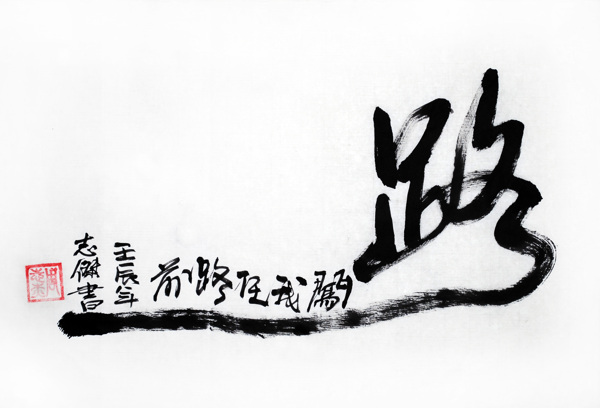 路
前路任我闖
壬辰年
志傑書